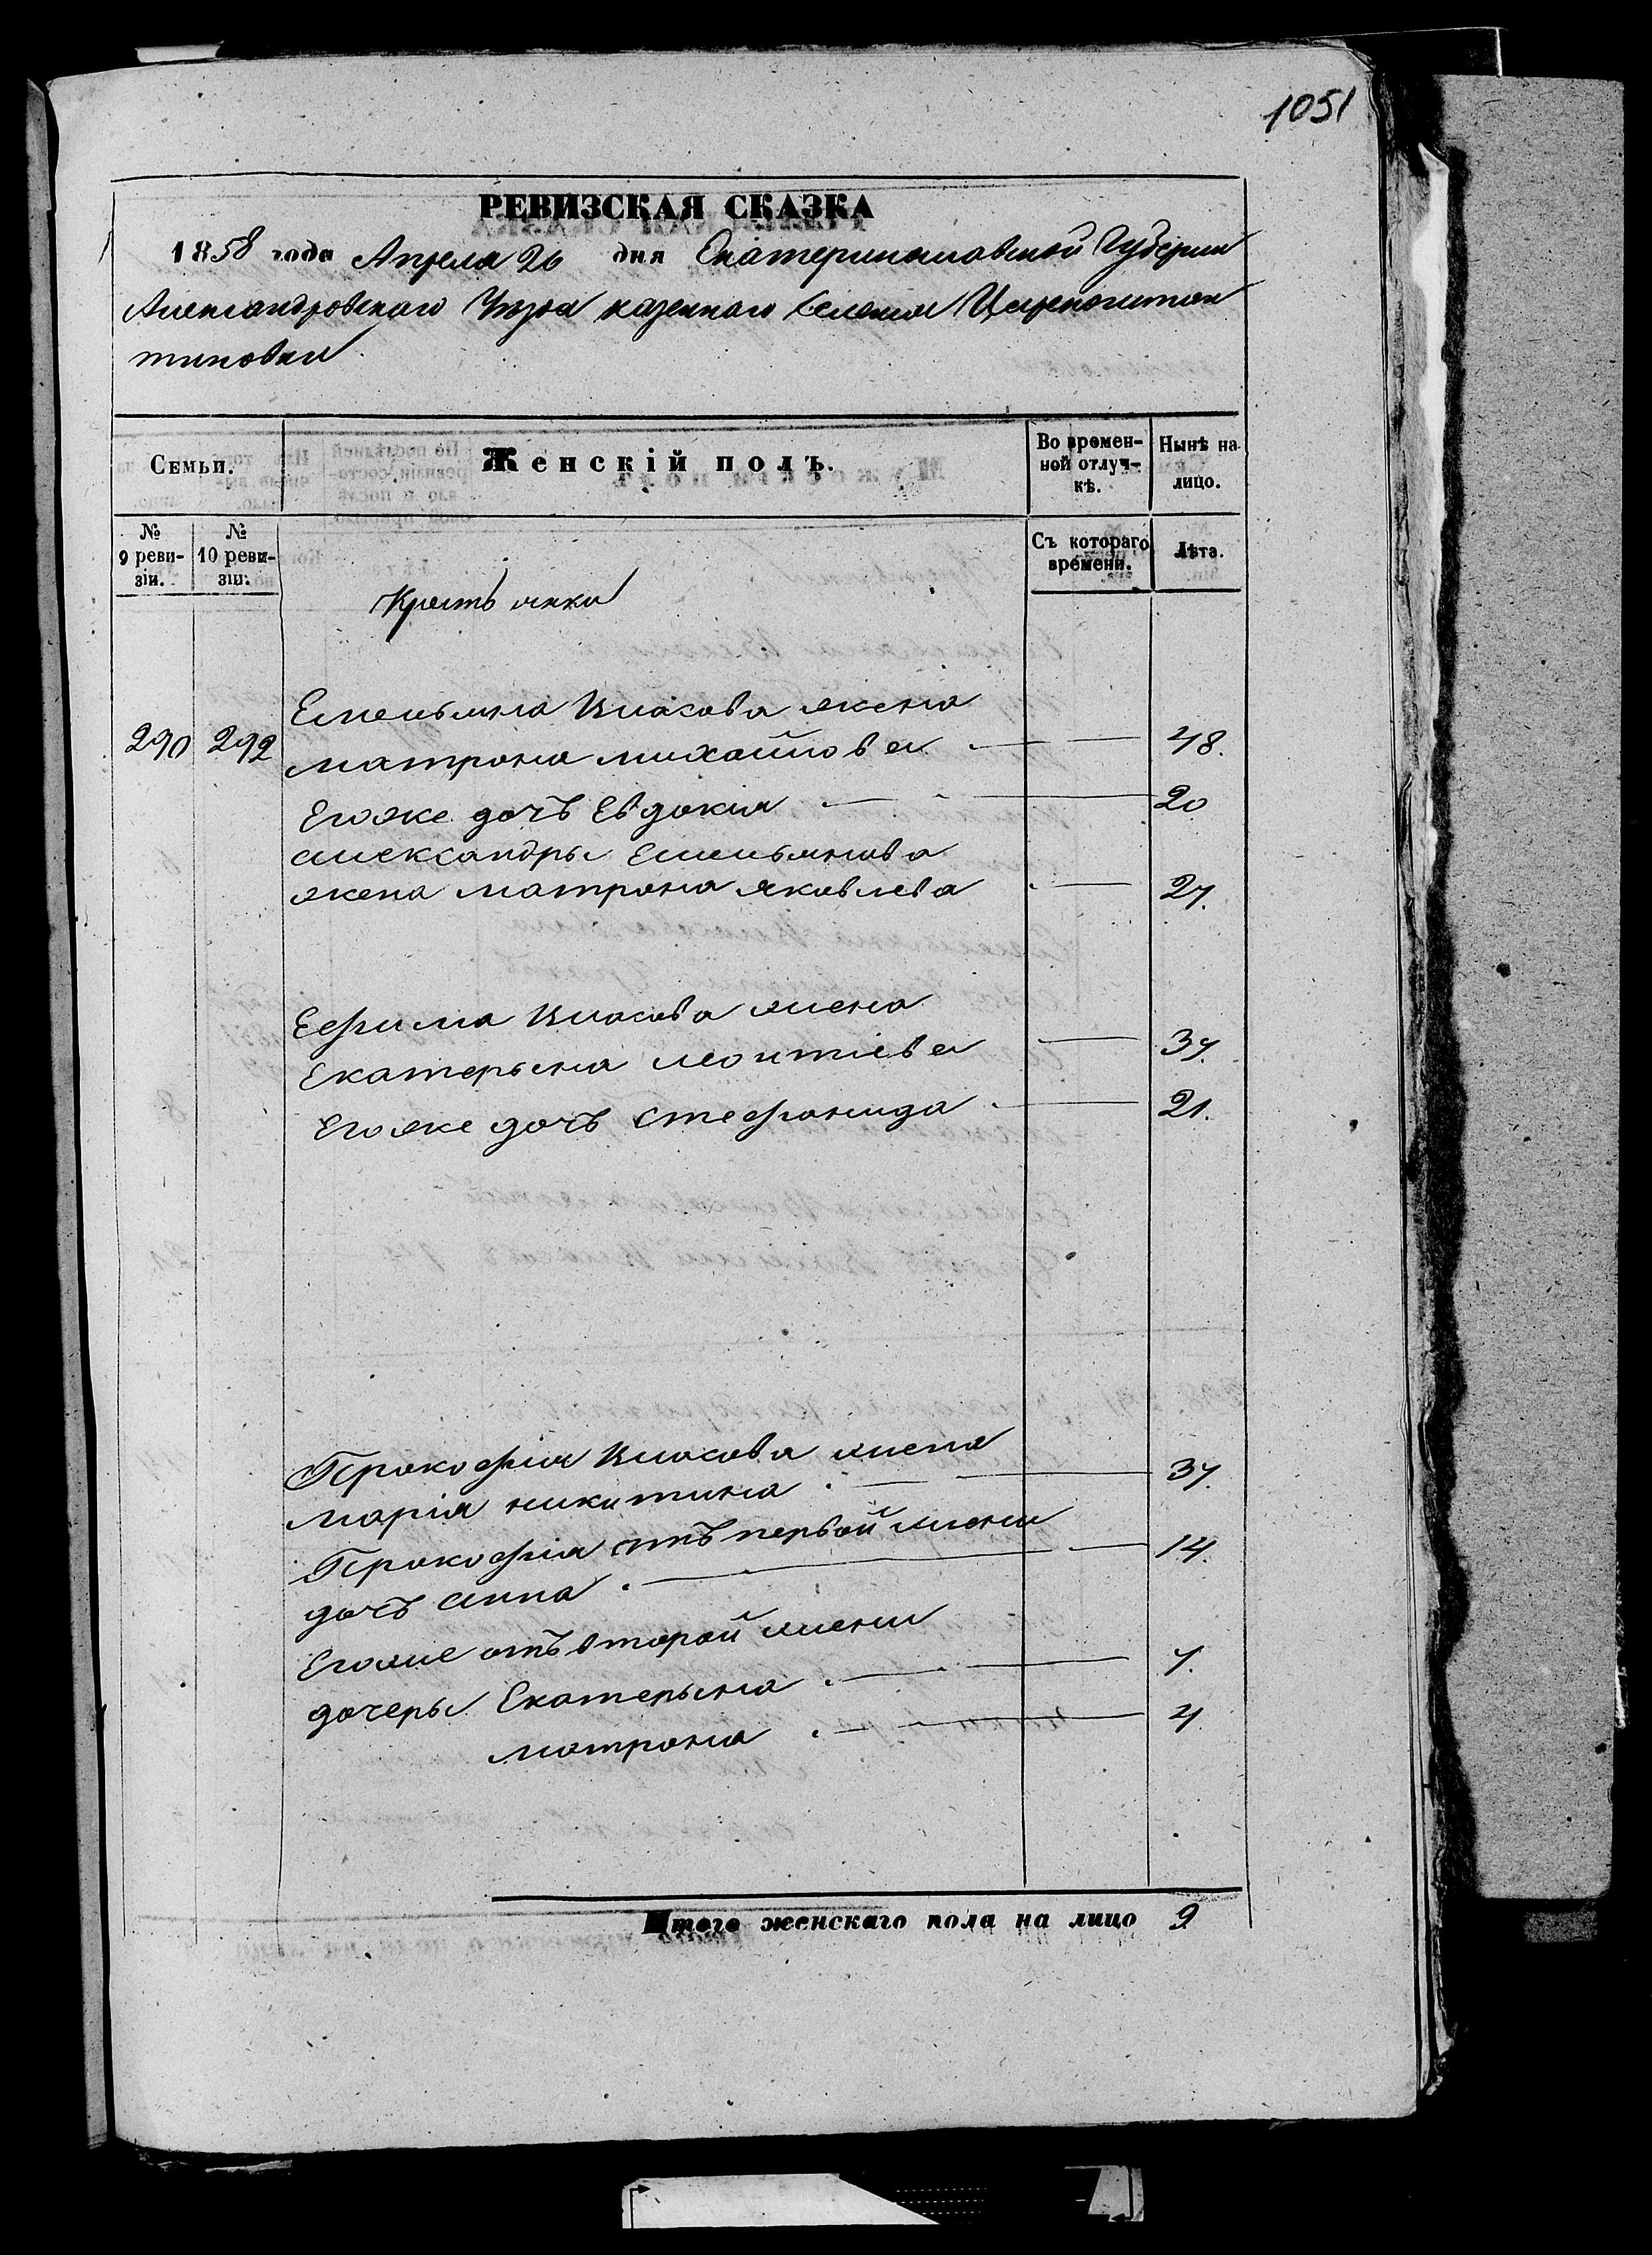 1051
РЕВИЗСКАЯ СКАЗКА
1858 года Апреля 26 дня Екатеринославской Губернии
Александровского Уезда казенного Селения Цареконстан
тиновки
Семьи.
Женскій полъ.
Во времен-
ной отлуч-
кѣ.
Нынѣ на
лицо.
№
9 реви-
зіи.
№
10 реви-
зіи.
Съ котораго
времени.
Лѣта.
Крестьянки
Емельяна Власова жена
290 292 матрона михайлова 48.
Егоже дочь Евдокия 20
александры Емельянова
жена матрона яковлева 27.
Еефима Власова жена
Екатерына леонтіева 37.
Егоже дочь Стефанида 21.
Прокофия Власова жена
марія никитина 37.
Прокофія отъ первой жены
дочъ анна 14.
Егоже отъ второй жены
дочеры Екатерына 7.
матрона 4
Итого женскаго пола на лицо 9